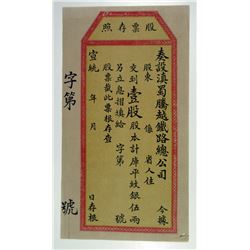 照存票股
奏設滇蜀騰越鐵路總公司 今據
股東 係 省人住
交到壹股股本計庫平紋銀伍兩
另立息摺填給 字第 號
股票截此票根存查
宣統 年 月 日存根
字第 號